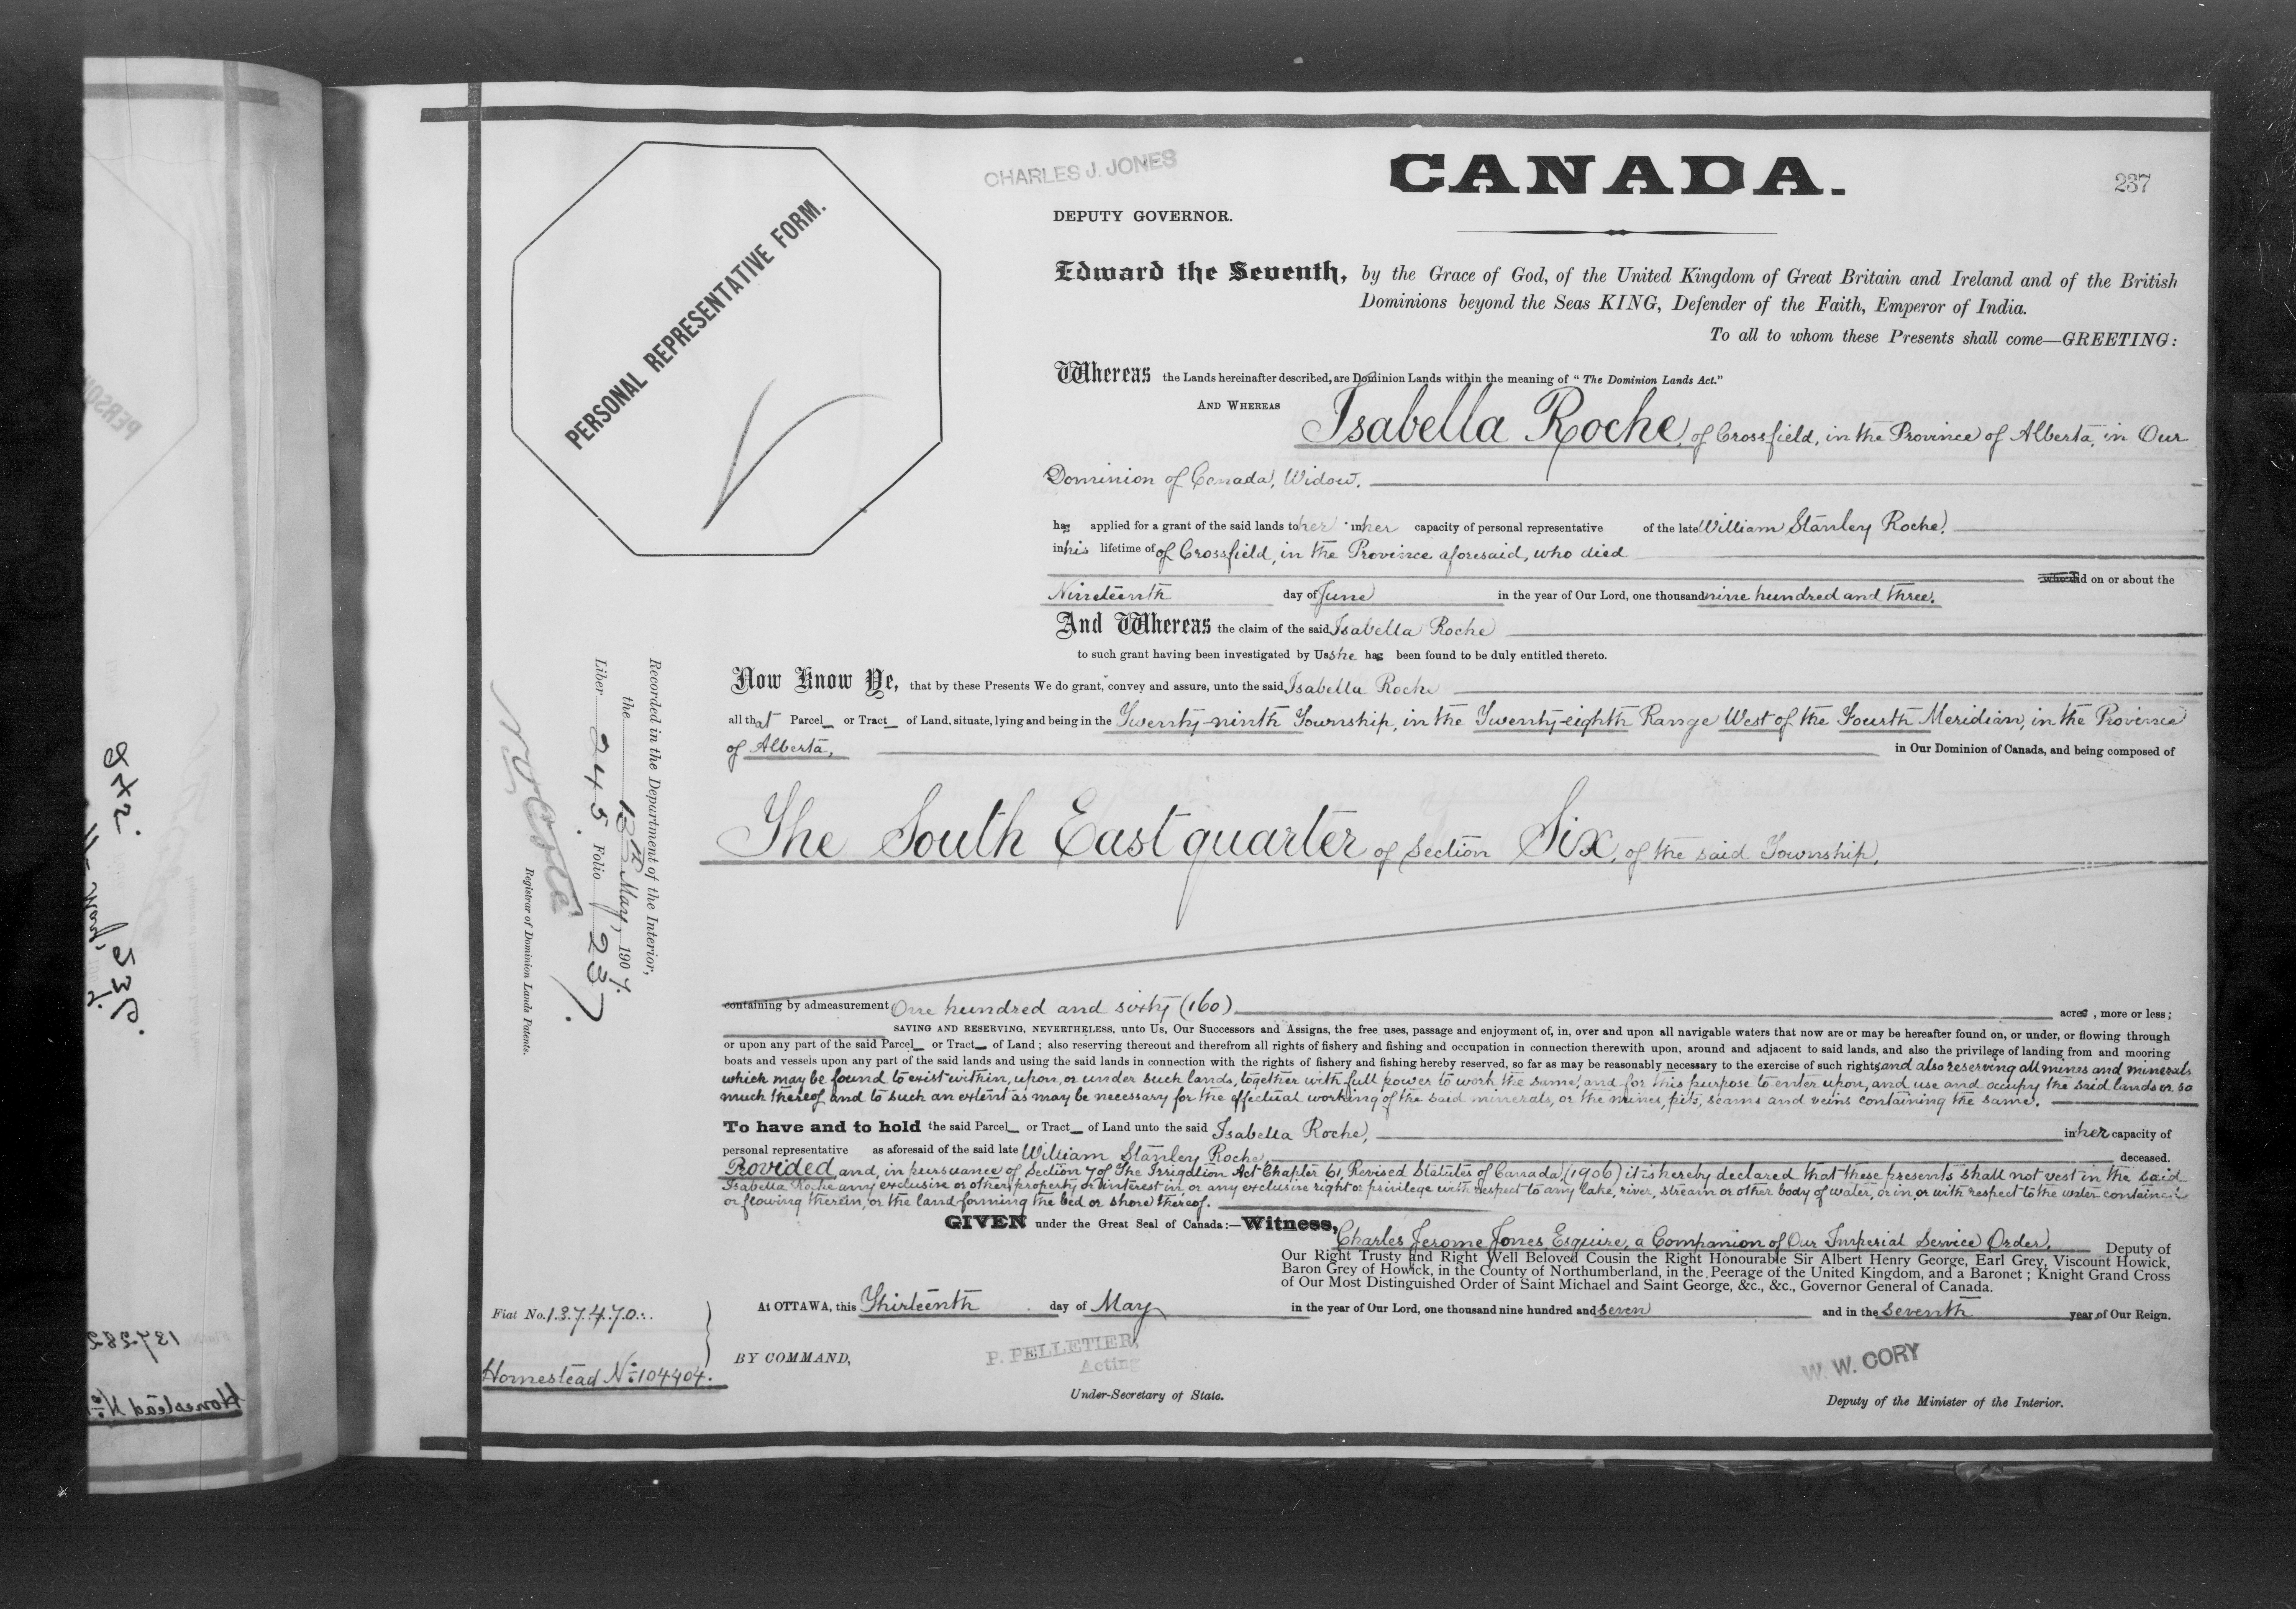 CHARLES J. JONES
CANADA.
237
DEPUTY GOVERNOR.
PERSONAL REPRESENTATIVE FORM.
Edward the Seventh, by the Grace of God, of the United Kingdom of Great Britain and Ireland and of the British
Dominions beyond the Seas KING, Defender of the Faith, Emperor of India.
To all to whom these Presents shall come—GREETING:
Whereas the Lands hereinafter described, are Dominion Lands within the meaning of "The Dominion Lands Act."
AND WHEREAS Isabella Roche, of Crossfield, in the Province of Alberta, in Our
Dominion of Canada, Widow.
has applied for a grant of the said lands to her in her capacity of personal representative of the late William Stanley Roche,
in his lifetime of of Crossfield, in the Province aforesaid, who died
on or about the
Nineteenth day of June in the year of Our Lord, one thousand nine hundred and three.
And Whereas the claim of the said Isabella Roche
to such grant having been investigated by Us she has been found to be duly entitled thereto.
Now Know Ye, that by these Presents We do grant, convey and assure, unto the said Isabella Roche
all that Parcel or Tract of Land, situate, lying and being in the Twenty-ninth Township, in the Twenty-eighth Range West of the Fourth Meridian, in the Province
of Alberta, in Our Dominion of Canada, and being composed of
The South East quarter of Section Six, of the said Township,
containing by admeasurement One hundred and sixty (160) acres, more or less;
SAVING AND RESERVING, NEVERTHELESS, unto Us, Our Successors and Assigns, the free uses, passage and enjoyment of, in, over and upon all navigable waters that now are or may be hereafter found on, or under, or flowing through
or upon any part of the said Parcel or Tract of Land; also reserving thereout and therefrom all rights of fishery and fishing and occupation in connection therewith upon, around and adjacent to said lands, and also the privilege of landing from and mooring
boats and vessels upon any part of the said lands and using the said lands in connection with the rights of fishery and fishing hereby reserved, so far as may be reasonably necessary to the exercise of such rights, and also reserving all mines and minerals
which may be found to exist within, upon, or under such lands, together with full power to work the same, and for this purpose to enter upon, and use and occupy the said lands or so
much thereof and to such an extent as may be necessary for the effectual working of the said minerals, or the mines, pits, seams and veins containing the same.
To have and to hold the said Parcel or Tract of Land unto the said Isabella Roche, in her capacity of
personal representative as aforesaid of the said late William Stanley Roche, deceased.
Provided and, in pursuance of Section 7 of The Irrigation Act Chapter 61, Revised Statutes of Canada, (1906) it is hereby declared that these presents shall not vest in the said
Isabella Roche any exclusive or other property or interest in, or any exclusive right or privilege with respect to any lake, river, stream or other body of water, or in, or with respect to the water contained
or flowing therein, or the land forming the bed or shore thereof.
GIVEN under the Great Seal of Canada:—Witness, Charles Jerome Jones Esquire, a Companion of Our Imperial Service Order, Deputy of
Our Right Trusty and Right Well Beloved Cousin the Right Honourable Sir Albert Henry George, Earl Grey, Viscount Howick,
Baron Grey of Howick, in the County of Northumberland, in the Peerage of the United Kingdom, and a Baronet; Knight Grand Cross
of Our Most Distinguished Order of Saint Michael and Saint George, &c., &c., Governor General of Canada.
At OTTAWA, this Thirteenth day of May in the year of Our Lord, one thousand nine hundred and seven and in the seventh year of Our Reign.
BY COMMAND,
P. PELLETIER,
Acting
Under-Secretary of State.
W. W. CORY
Deputy of the Minister of the Interior.
Fiat No. 137470
Homestead No. 104404.
Recorded in the Department of the Interior,
the 13th May, 1907.
Liber 245 Folio 237.
Registrar of Dominion Lands Patents.